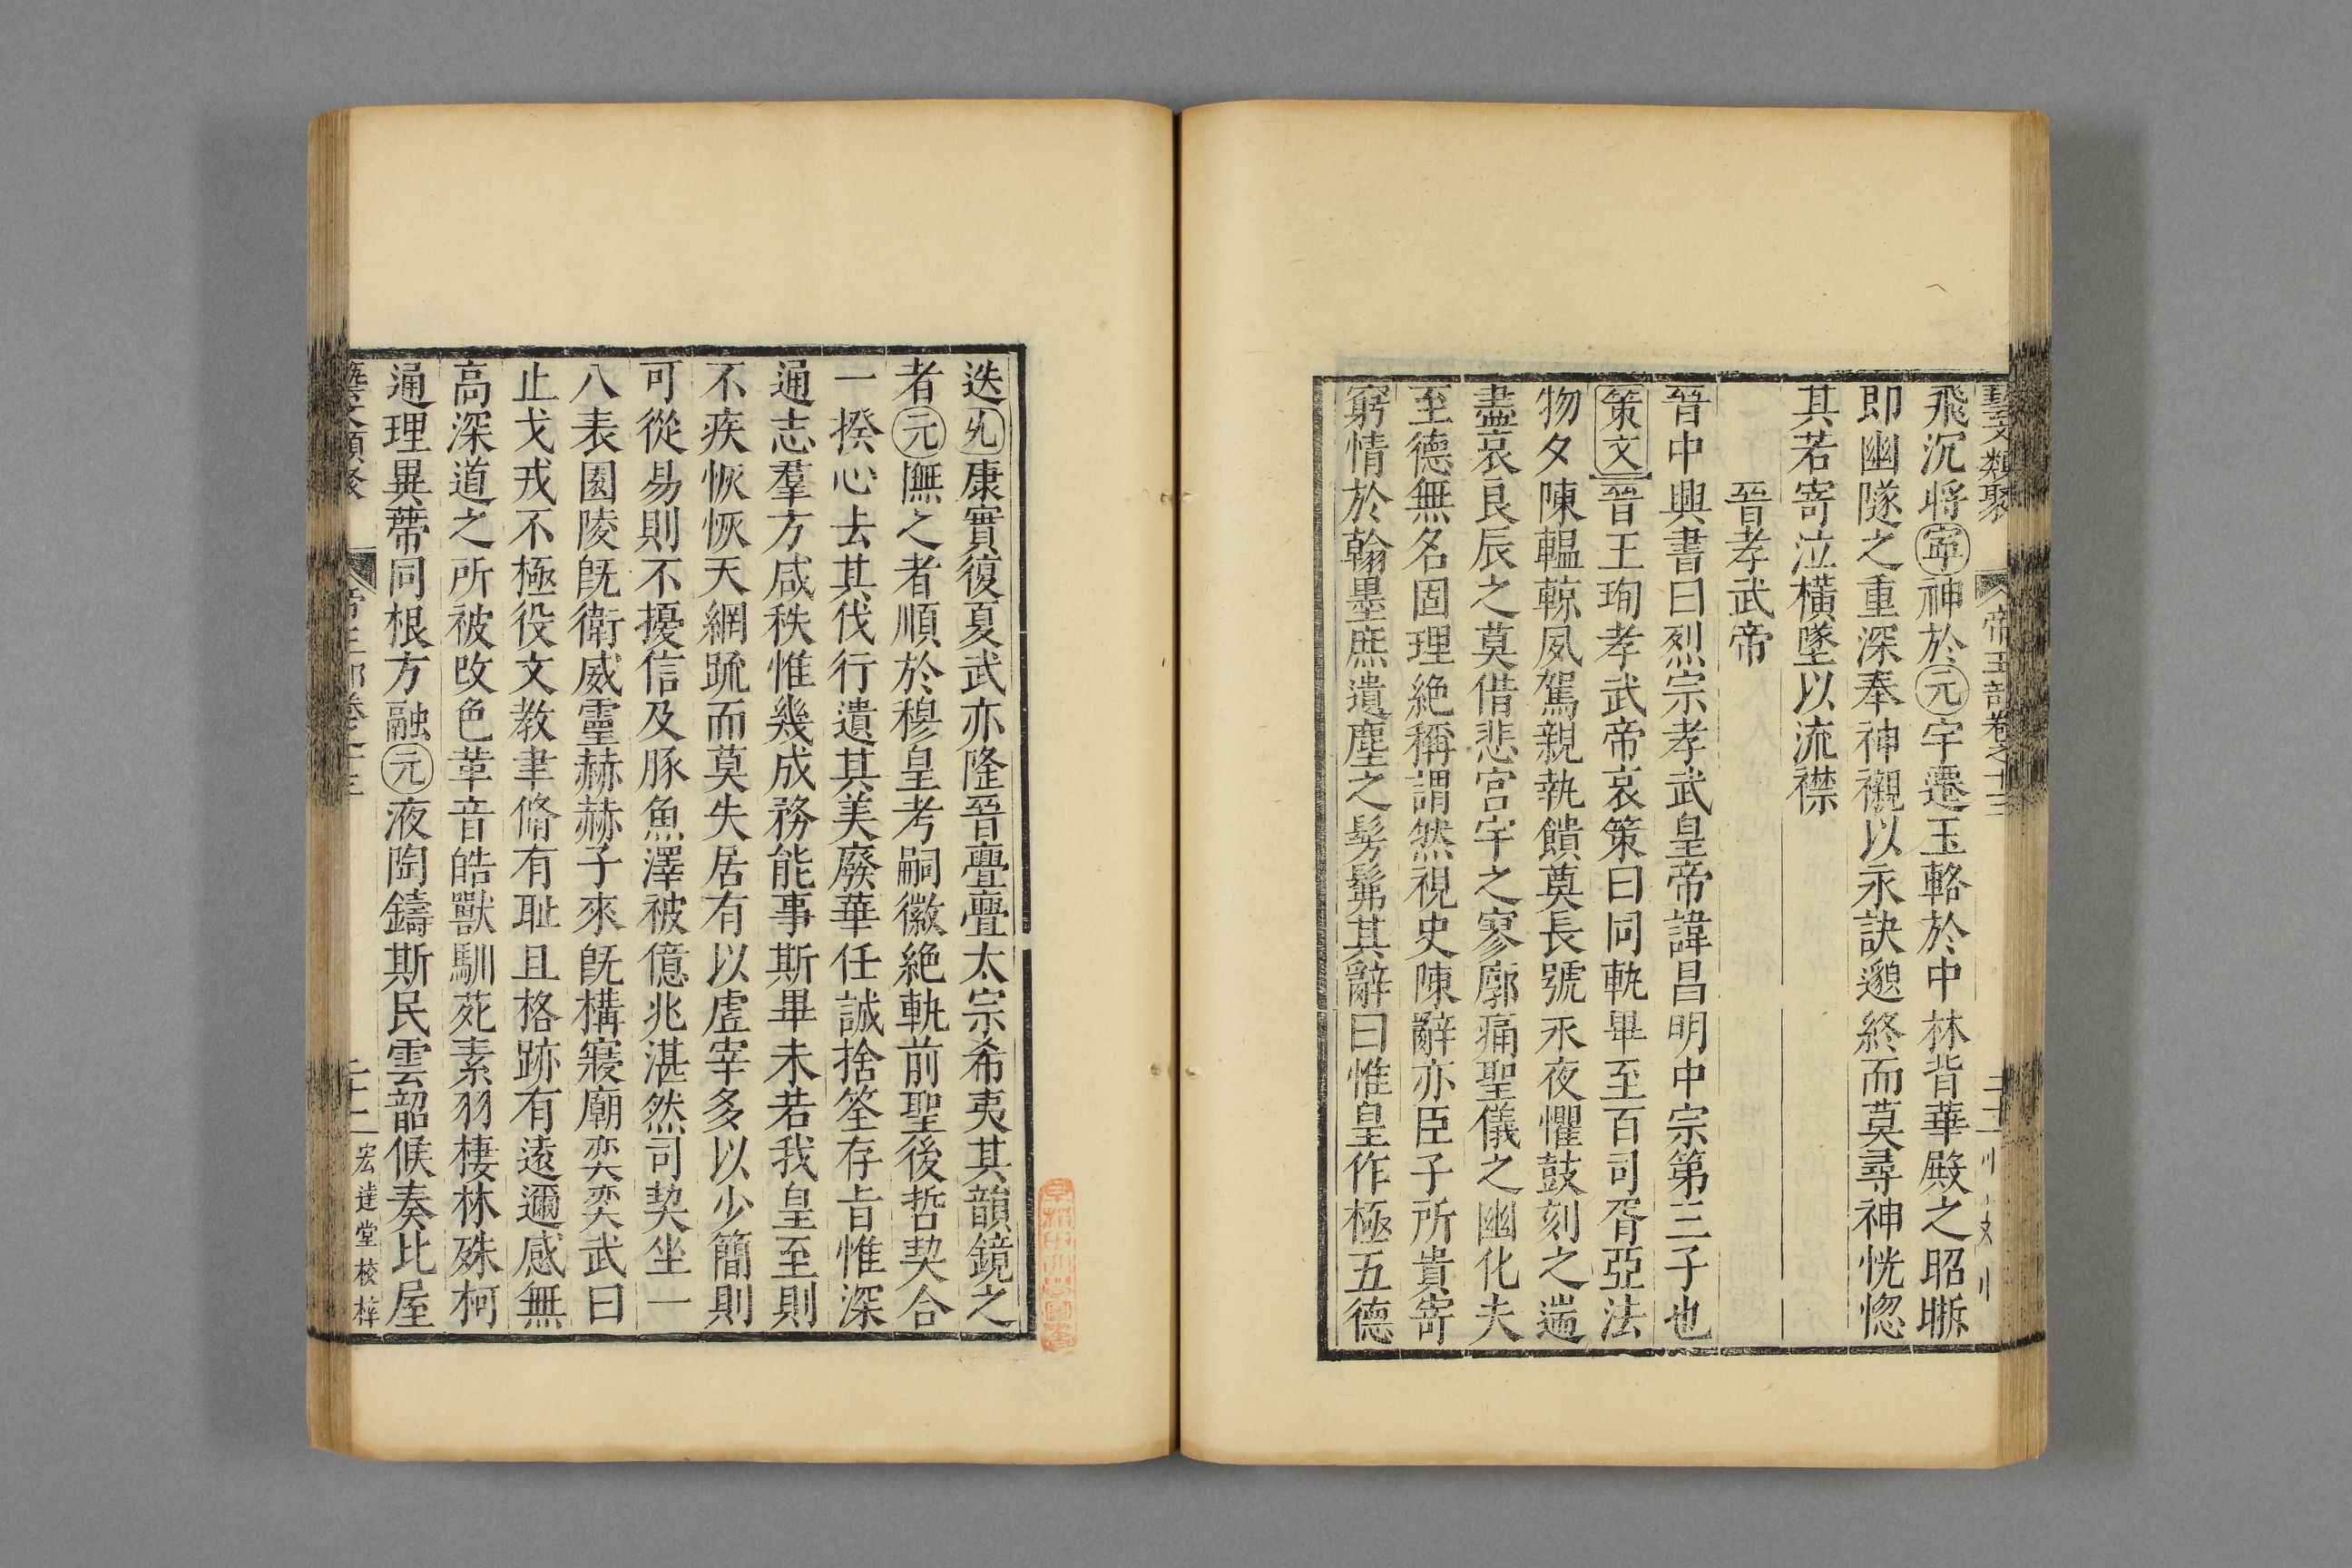 藝文類聚 帝王部卷之十三
飛沉将寕神於元宇遷玉輅於中林背華殿之昭晰
即幽隧之重深奉神櫬以永訣邈終而莫尋神恍惚
其若寄泣橫墜以流襟
晉孝武帝
晉中興書曰烈宗孝武皇帝諱昌明中宗第三子也
策文晉王珣孝武帝哀策曰同軌畢至百司胥亞法
物夕陳轀輬夙駕親執饋奠長號永夜懼鼓刻之遄
盡哀良辰之莫借悲宮宇之寥廓痛聖儀之幽化夫
至德無名固理絶稱謂然視史陳辭亦臣子所貴寄
窮情於翰墨庶遺塵之髣髴其辭曰惟皇作極五德
迭康實復夏武亦隆晉亹亹太宗希夷其韻鏡之
者元憮之者順於穆皇考嗣徽絶軌前聖後哲契合
一揆心去其伐行遺其美廢華任誠捨筌存㫖惟深
通志羣方咸秩惟幾成務能事斯畢未若我皇至則
不疾恢恢天網疏而莫失居有以虗宰多以少簡則
可從易則不擾信及豚魚澤被億兆湛然司契坐一
八表園陵旣衛威靈赫赫子來旣構寢廟奕奕武曰
止戈戎不極役文教聿脩有耻且格跡有遠邇感無
高深道之所被改色革音皓獸馴苑素羽棲林殊柯
通理異蔕同根方融元液陶鑄斯民雲韶候奏比屋
藝文類聚 帝王部卷之十三 二十二 宏達堂校梓